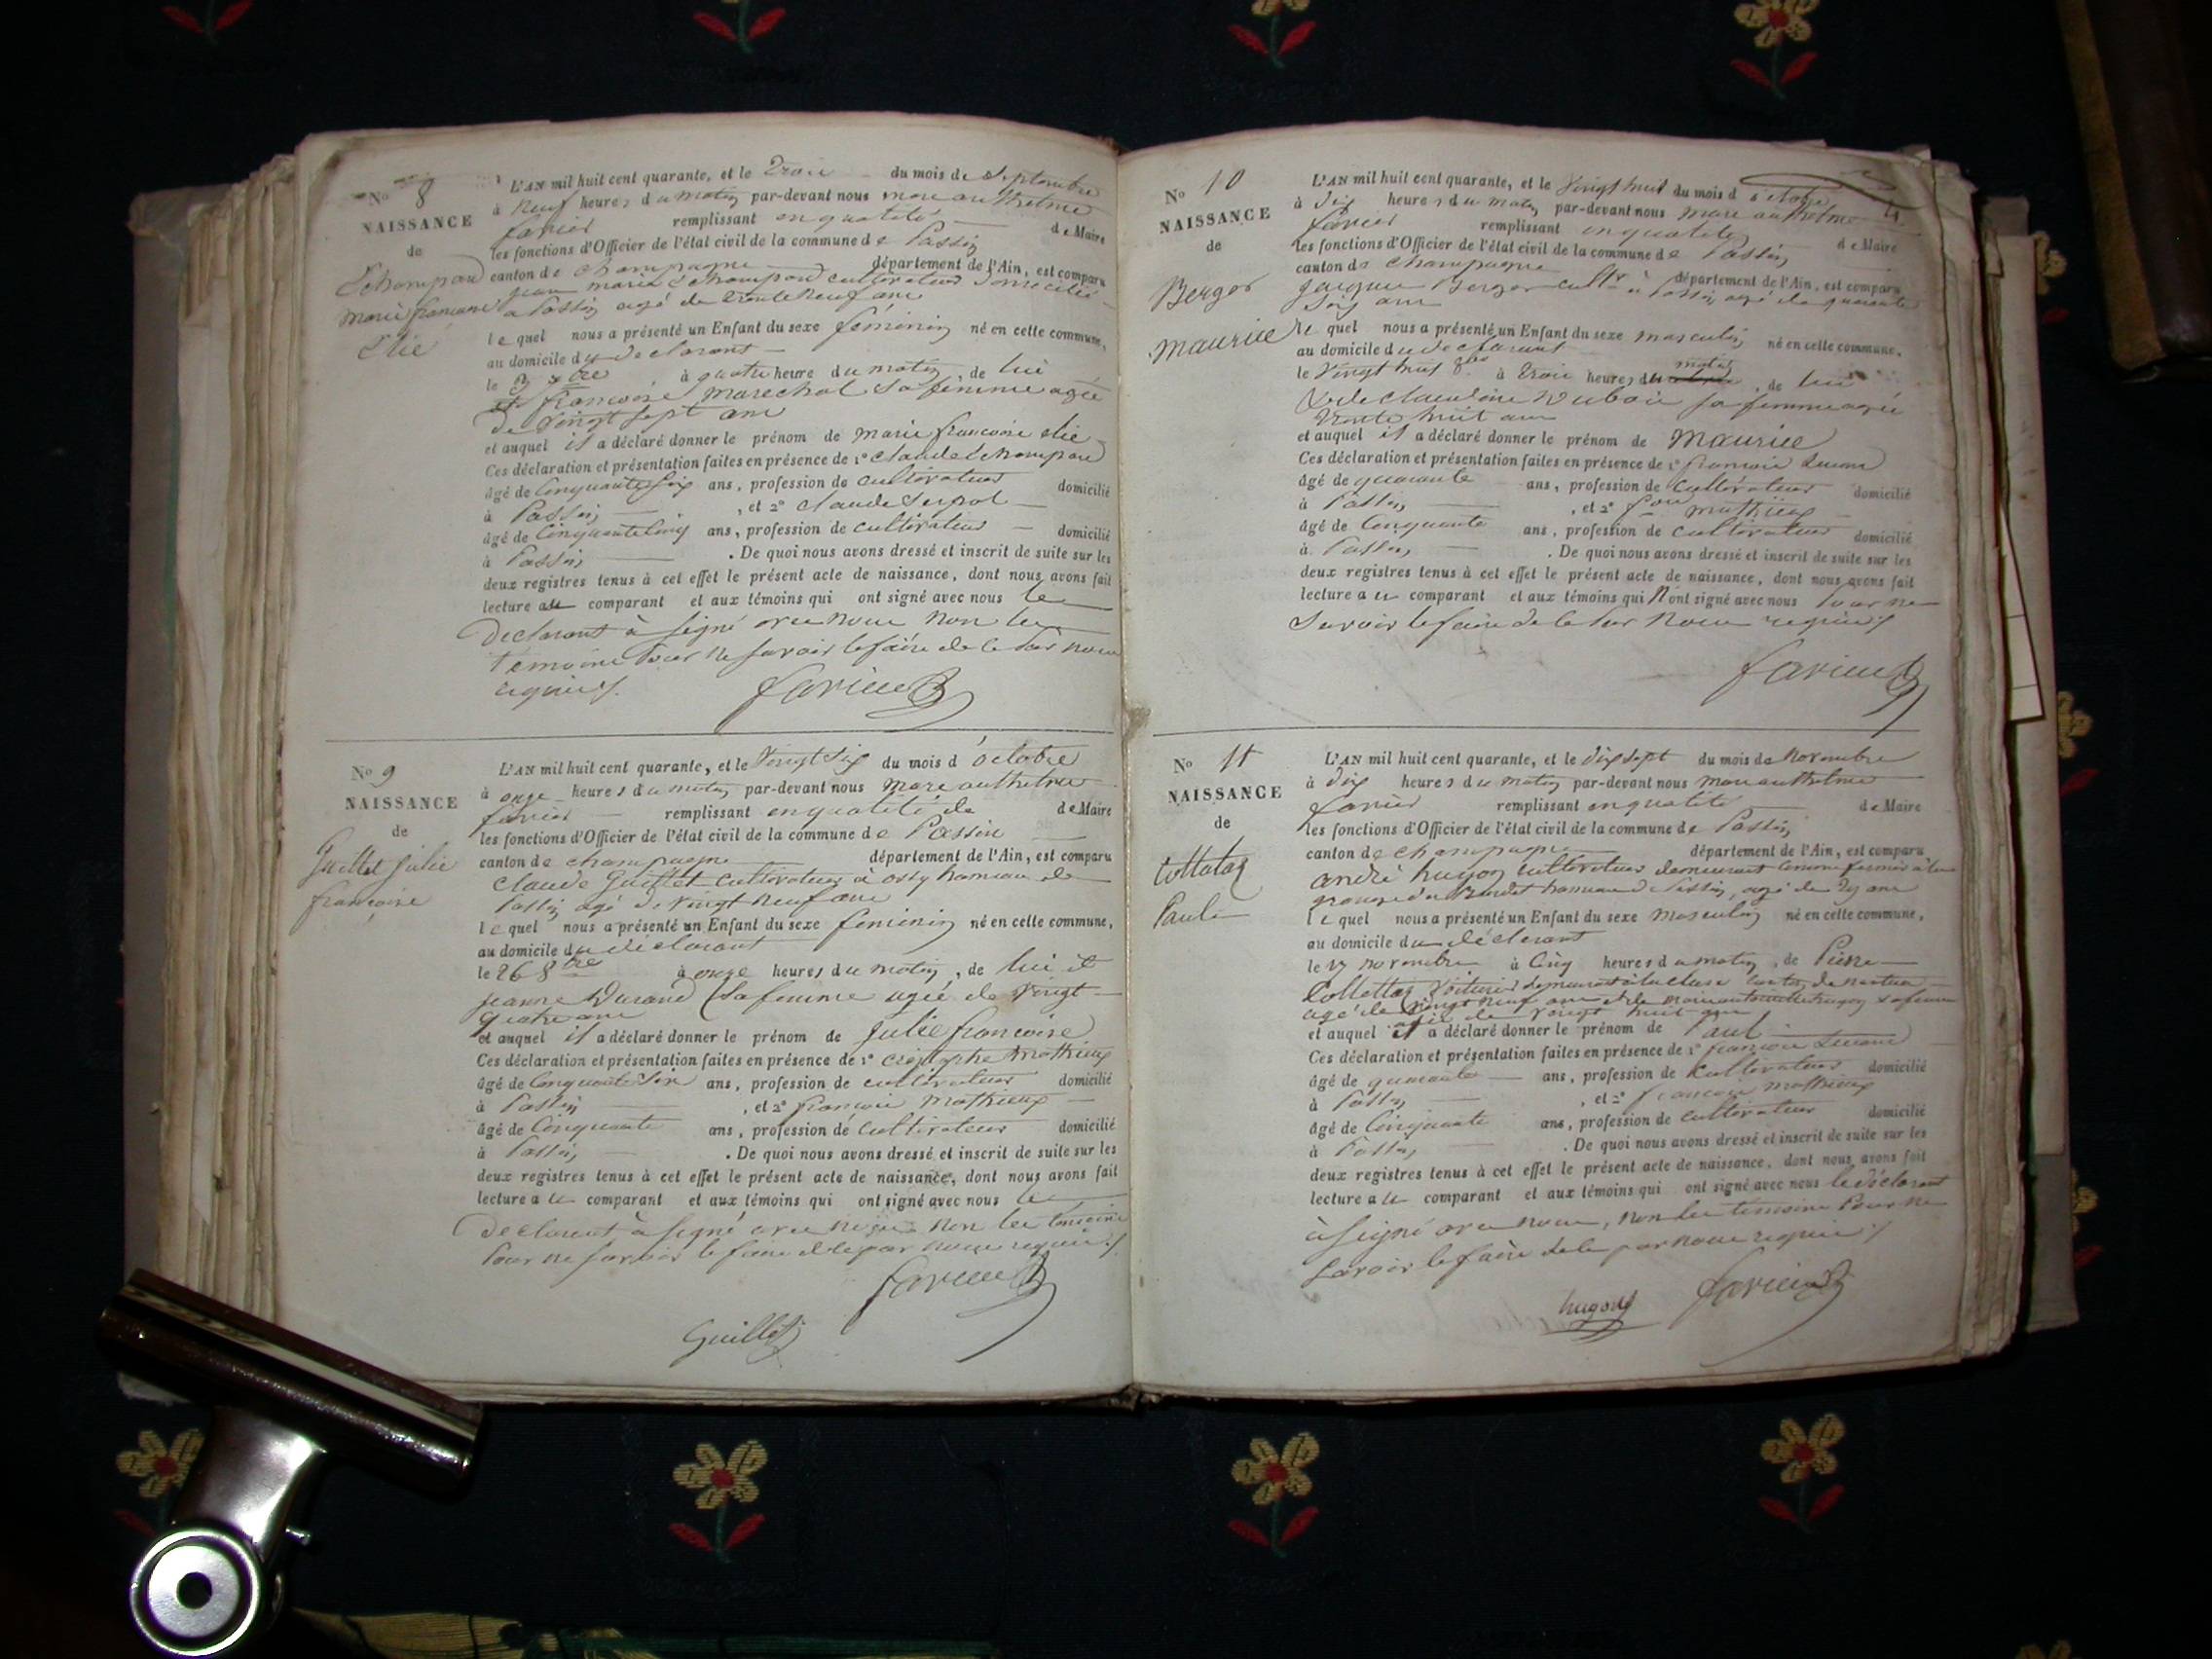 No 8
NAISSANCE
de
Echampard
Marie francoise
Elié
L'AN mil huit cent quarante, et le trois du mois de Septembre
à neuf heures du matin par-devant nous marc anthelme
favier remplissant en qualité de Maire
les fonctions d'Officier de l'état civil de la commune de Passin
canton de champagne département de l'Ain, est comparu
jean marie Echampard cultivateur domicilié
a Passin agé de trente neuf ans
lequel nous a présenté un Enfant du sexe féminin né en cette commune,
au domicile du déclarant
le 3 7bre à quatre heure du matin, de lui
et francoise marechal sa femme agée
de vingt sept ans
et auquel il a déclaré donner le prénom de marie francoise elie
Ces déclaration et présentation faites en présence de 1º claude Echampard
âgé de Cinquante six ans, profession de cultivateur domicilié
à Passin, et 2º claude Serpol
âgé de Cinquante cinq ans, profession de cultivateur domicilié
à Passin. De quoi nous avons dressé et inscrit de suite sur les
deux registres tenus à cet effet le présent acte de naissance, dont nous avons fait
lecture au comparant et aux témoins qui ont signé avec nous le
Declarant à signé avec nous non les
témoins Pour ne savoir le faire de ce Par nous
requis
favier
No 9
NAISSANCE
de
Guillet Julie
francoise
L'AN mil huit cent quarante, et le Vingt Six du mois d'octobre
à onze heures du matin par-devant nous marc anthelme
favier remplissant en qualité de de Maire
les fonctions d'Officier de l'état civil de la commune de Passin
canton de champagne département de l'Ain, est comparu
claude Guillet cultivateur à ossy hameau de
Passin agé de vingt neuf ans
lequel nous a présenté un Enfant du sexe feminin né en cette commune,
au domicile du déclarant
le 26 8bre à onze heures du matin, de lui et
jeanne Durand sa femme agée de vingt
quatre ans
et auquel il a déclaré donner le prénom de julie francoise
Ces déclaration et présentation faites en présence de 1º mathieux
âgé de Cinquante Six ans, profession de cultivateur domicilié
à Passin, et 2º francois mathieux
âgé de Cinquante ans, profession de Cultivateur domicilié
à Passin. De quoi nous avons dressé et inscrit de suite sur les
deux registres tenus à cet effet le présent acte de naissance, dont nous avons fait
lecture au comparant et aux témoins qui ont signé avec nous le
declarant à signé avec nous non les temoins
Pour ne savoir le faire de ce par nous requis
favier
Guillet
No 10
NAISSANCE
de
Berger
maurice
4
L'AN mil huit cent quarante, et le Vingt huit du mois d'octobre
à dix heures du matin par-devant nous marc anthelme
favier remplissant en qualité de Maire
les fonctions d'Officier de l'état civil de la commune de Passin
canton de champagne département de l'Ain, est comparu
jacques Berger cultr à Passin agé de quarante
Six ans
lequel nous a présenté un Enfant du sexe masculin né en cette commune,
au domicile du déclarant
le Vingt huit 8bre à trois heures du matin, de lui
et de claudine Dubois sa femme agée
trente huit ans
et auquel il a déclaré donner le prénom de Maurice
Ces déclaration et présentation faites en présence de 1º francois
âgé de quarante ans, profession de cultivateur domicilié
à Passin, et 2º fçois mathieux
âgé de Cinquante ans, profession de cultivateur domicilié
à Passin. De quoi nous avons dressé et inscrit de suite sur les
deux registres tenus à cet effet le présent acte de naissance, dont nous avons fait
lecture au comparant et aux témoins qui n'ont signé avec nous Pour ne
Savoir le faire de ce Par nous requis
favier
No 11
NAISSANCE
de
Collettaz
Paul
L'AN mil huit cent quarante, et le dix sept du mois de Novembre
à dix heures du matin par-devant nous marc anthelme
favier remplissant en qualité de Maire
les fonctions d'Officier de l'état civil de la commune de Passin
canton de champagne département de l'Ain, est comparu
andré hugon cultivateur demeurant comme fermier à la
grange hameau de Passin, agé de ans
lequel nous a présenté un Enfant du sexe masculin né en cette commune,
au domicile du déclarant
le 17 novembre à Cinq heures du matin, de Pierre
Collettaz voiturier demeurant à la cluse
agé de vingt neuf ans et de hugon sa femme
de vingt huit ans
et auquel il a déclaré donner le prénom de Paul
Ces déclaration et présentation faites en présence de 1º francois
âgé de quarante ans, profession de Cultivateur domicilié
à Passin, et 2º francois mathieux
âgé de Cinquante ans, profession de cultivateur domicilié
à Passin. De quoi nous avons dressé et inscrit de suite sur les
deux registres tenus à cet effet le présent acte de naissance, dont nous avons fait
lecture au comparant et aux témoins qui ont signé avec nous le déclarant
à signé avec nous, non les témoins Pour ne
Savoir le faire de ce par nous requis
hugon favier